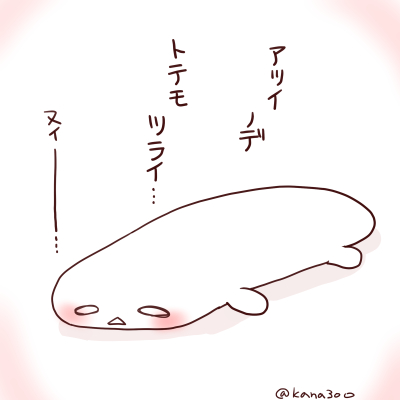 アツイ
ノデ
トテモ
ツライ…
ヌィ――…
@kana300